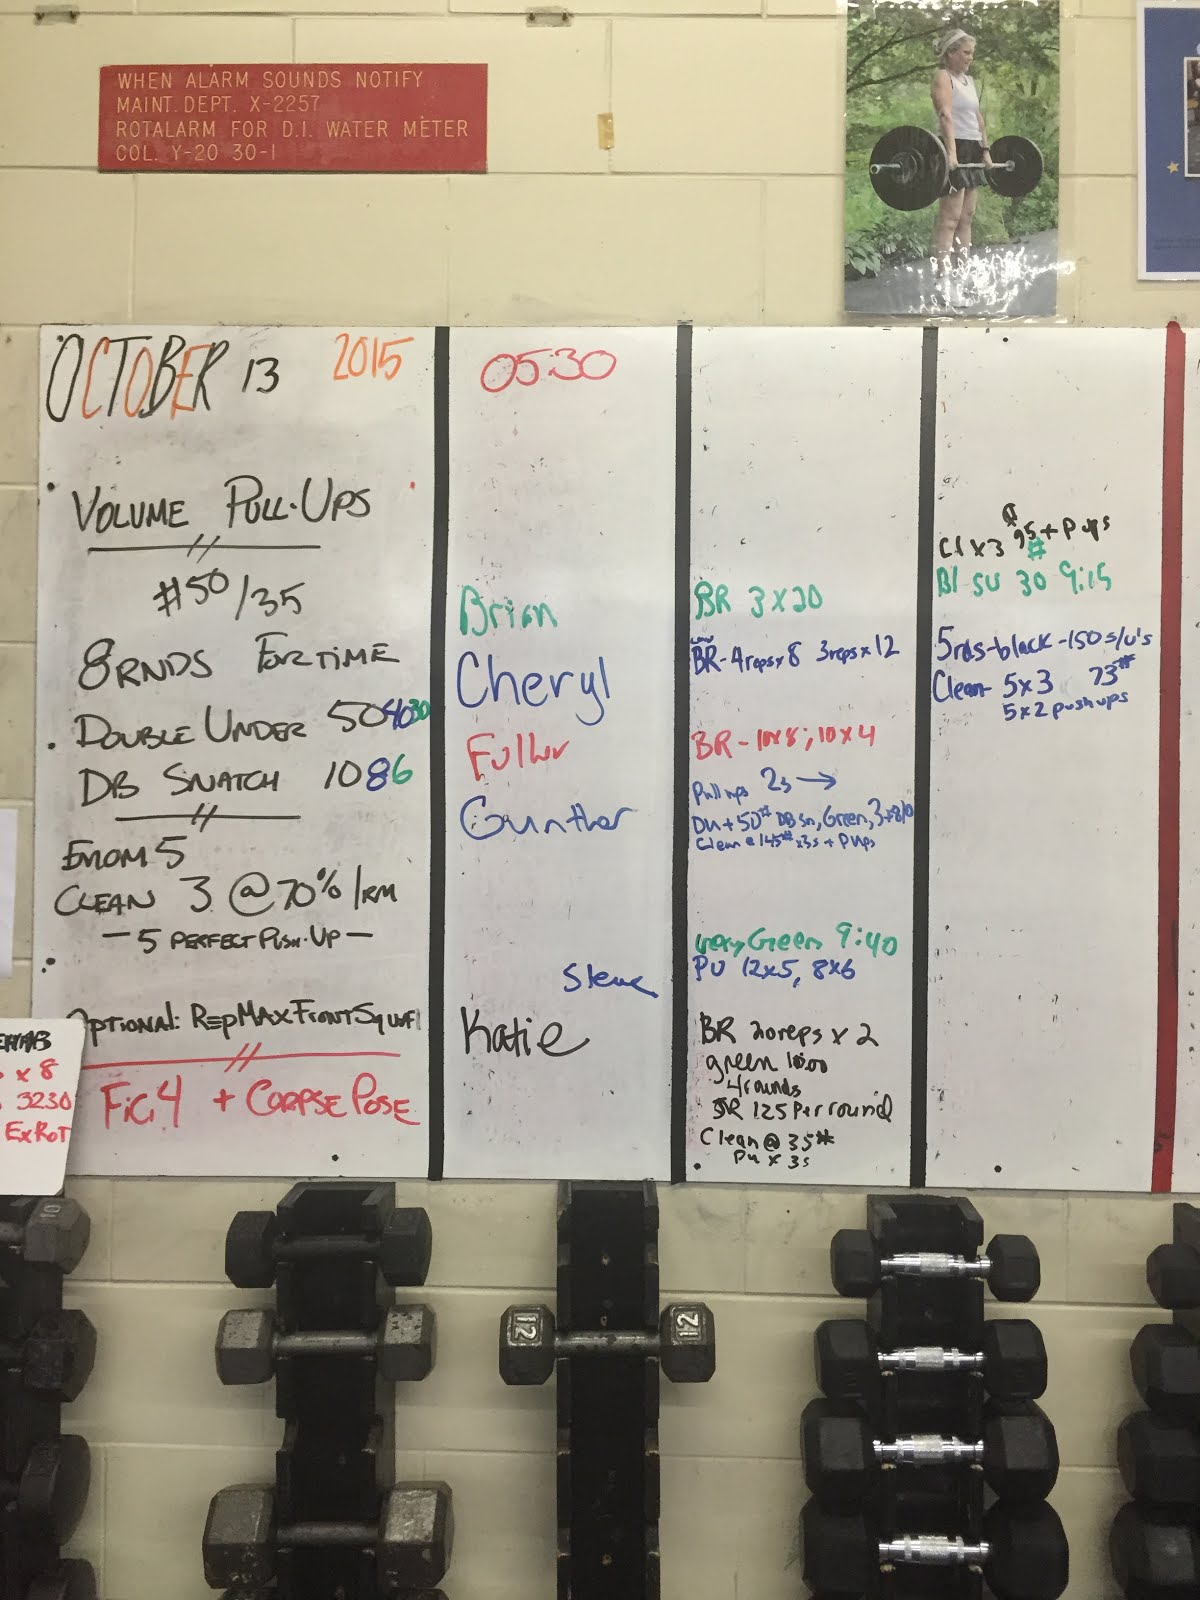 WHEN ALARM SOUNDS NOTIFY
MAINT. DEPT. X-2257
ROTALARM FOR D.I. WATER METER
COL. Y-20 30-1
OCTOBER 13 2015
VOLUME PULL-UPS
#50/35
8 RNDS FOR TIME
DOUBLE UNDER 50 40 30
DB SNATCH 10 8 6
EMOM 5
CLEAN 3 @ 70% 1RM
- 5 PERFECT PUSH-UP -
OPTIONAL: REP MAX FRONT SQUAT
FIG. 4 + CORPSE POSE
x 8
3230
EXROT
05:30
Brian
Cheryl
Fuller
Gunther
Steve
Katie
BR 3x20
BR - 4 reps x 8 3 reps x 12
BR - 10x8; 10x4
Pull ups 2s →
DU + 50# DB Sn, Green,
Clean @ 145# x3s + Pups
Green 9:40
PU 12x5, 8x6
BR 20 reps x 2
green 10:00
4 rounds
JR 125 per round
Clean @ 35#
PU x 3s
Cl x 3 @ 95# + P ups
Bl SU 30 9:15
5 rds - black - 150 s/u's
Clean - 5x3 73#
5x2 pushups
12
12
10